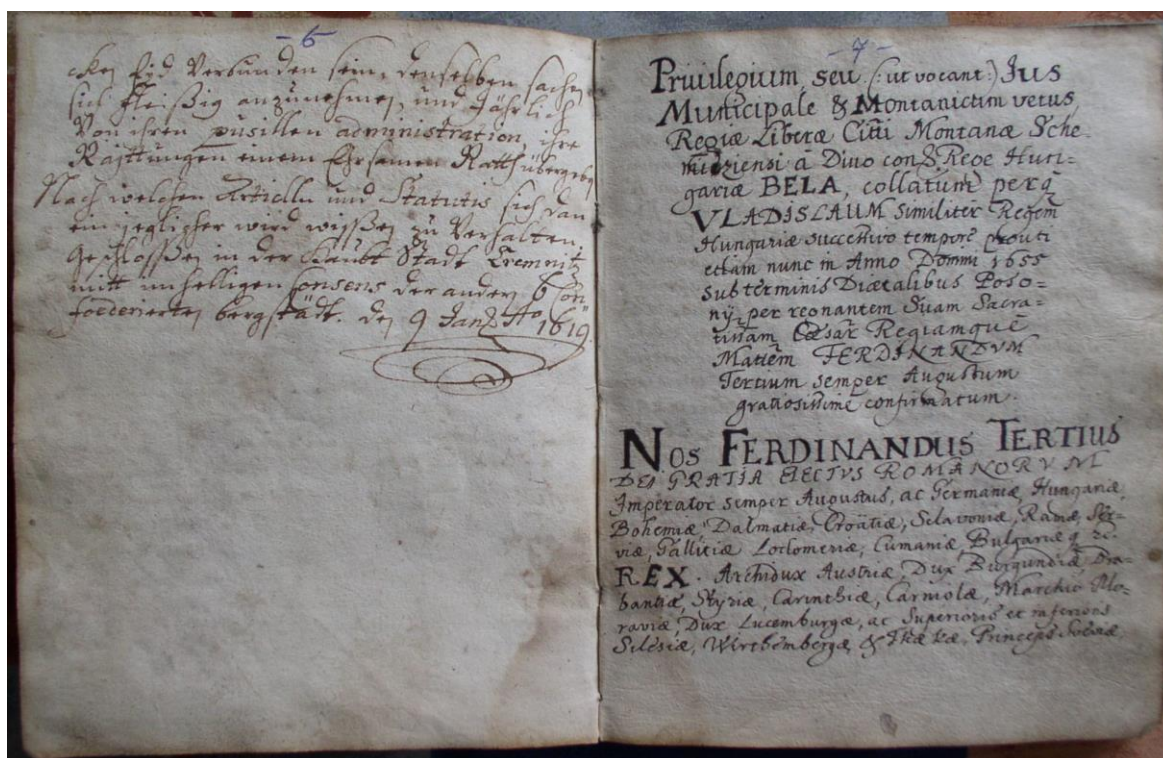 - 6
cken Eyd verbunden sein, denselben sachen
sich fleißig anzunehmen, und Jährlich
von ihren pusillen administration, ihre
Raittungen einem Ehrsamen Rath übergeben
Nach welchen Articlln und Statutis sich dan
ein jeglicher wird wissen zu verhalten.
Geschloßen in der Haubt Stadt Cremnitz
mitt einhelligen Consens der andern 6 Con¨
foederierten bergstädt. den 9 Jan Ao 1619.
- 7 -
Priuilegium, seu (: ut vocant :) Jus
Municipale & Montanicum vetus,
Regiæ Liberæ Citti Montanæ Sche-
mniziensi a Divo Rege Hun=
gariæ BELA, collatum perq
VLADISLAUM Similiter Regem
Hungariæ successivo tempore prouti
etiam nunc in Anno Domini 1655
sub terminis Diætalibus Poso=
ny, per regnantem Suam Sacra=
tissimam Cæsar Regiamque
Mattem FERDINANDVM
Tertium semper Augustum
gratiosissime confirmatum.
NOS FERDINANDUS TERTIUS
DEI GRATIA ELECTVS ROMANORVM
Imperator semper Augustus, ac Germaniæ, Hungariæ,
Bohemiæ, Dalmatiæ, Croatiæ, Sclavoniæ, Ramæ, Ser=
viæ, Galliciæ Lodomeriæ, Cumaniæ, Bulgariæ q
REX. Archidux Austriæ, Dux Burgundiæ, Bra=
bantiæ, Styriæ, Carinthiæ, Carniolæ, Marchio Mo=
raviæ, Dux Lucemburgæ, ac Superioris et inferioris
Silesiæ, Wirthembergæ, & Princeps Sveviæ